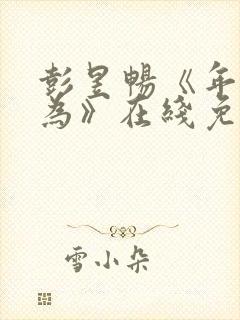 彭昱暢《年
為》在綫免
雪小朵